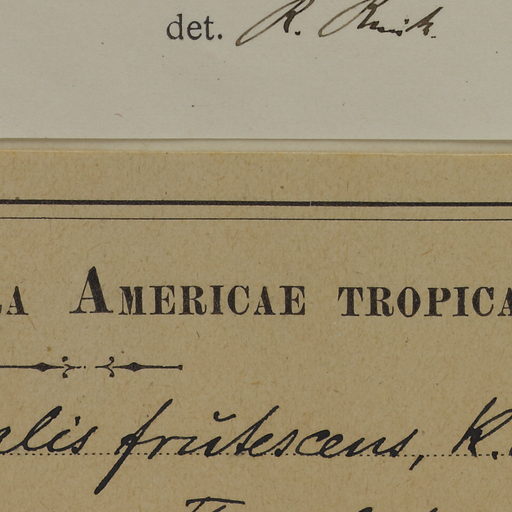 det. R.
LA AMERICAE TROPICA
alis frutescens, K.